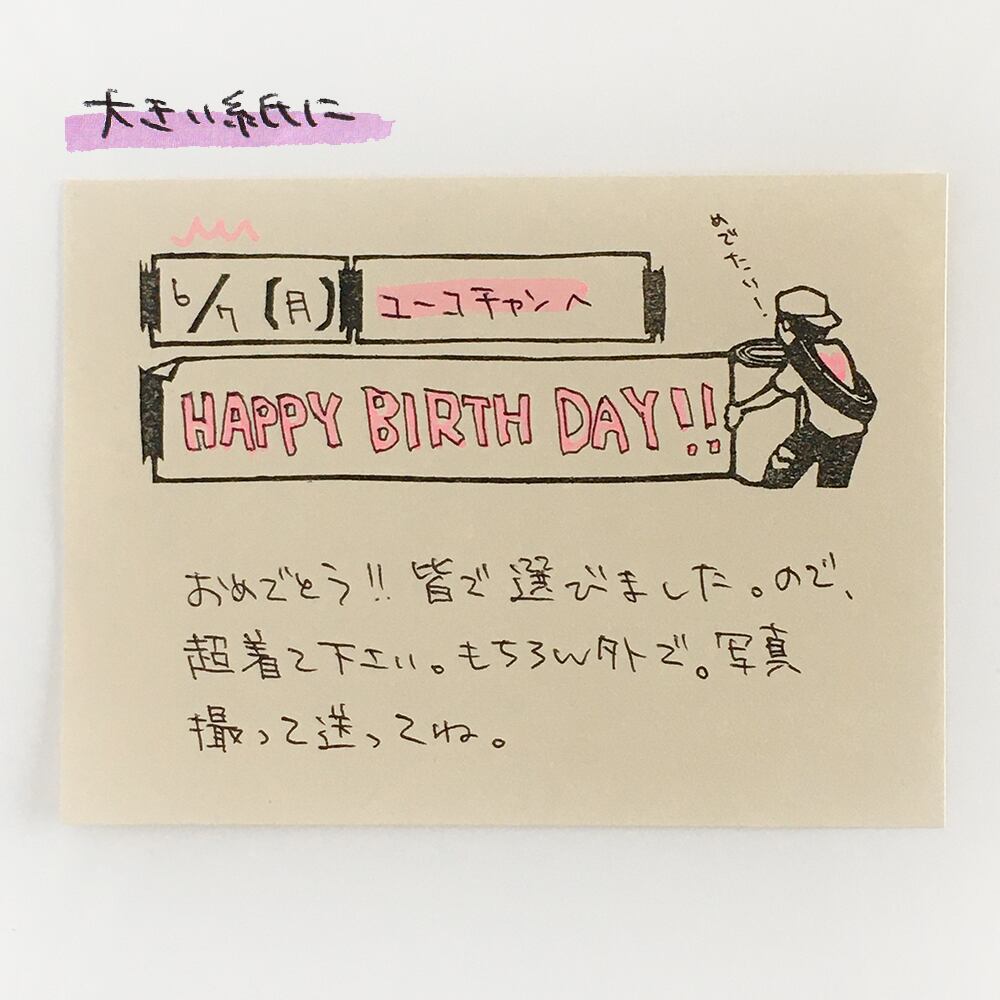 大きい紙に
めでたい!
6/7(月)
ユーコチャンへ
HAPPY BIRTH DAY!!
おめでとう!! 皆で選びました。ので、
超着て下さい。もちろん外で。写真
撮って送ってね。